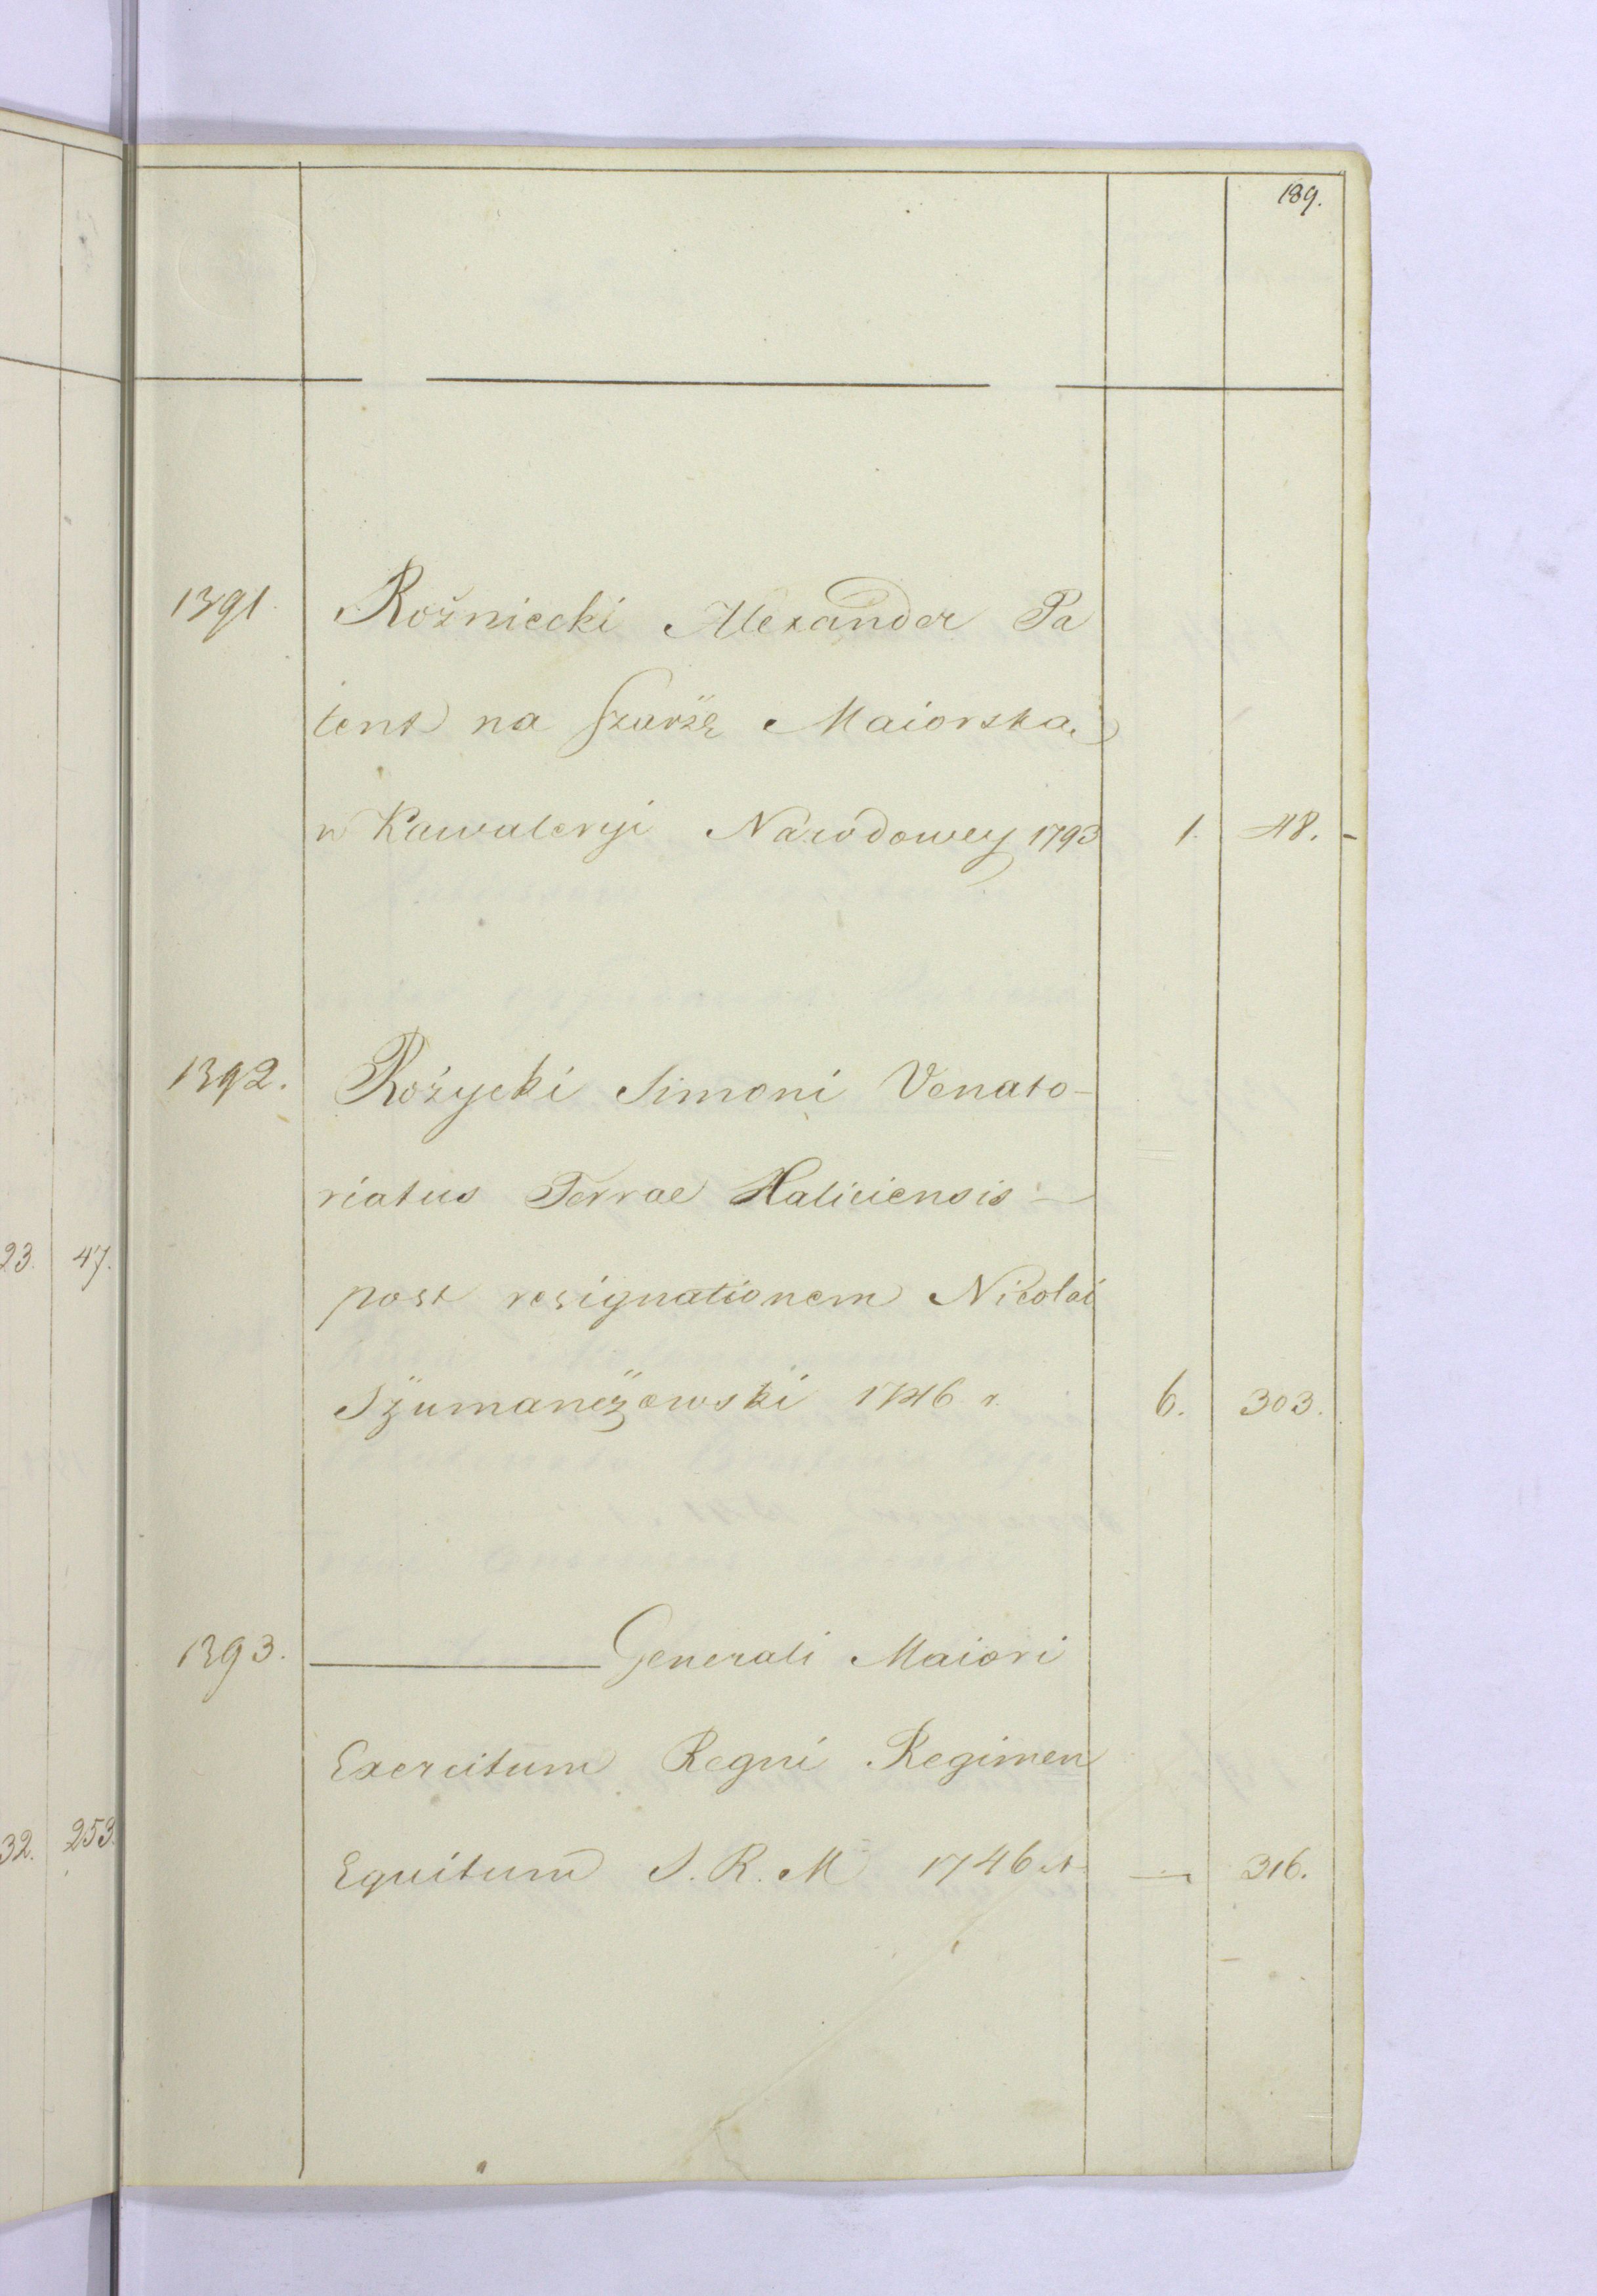 189.
1391. Rożniecki Alexander Pa
tent na szarżę Maiorską
w Kawaleryi Narodowey 1793 1. 48.
1392. Rożycki Simoni Venato-
riatus Terrae Haliciensis
post resignationem Nicolai
Szumanczowski 1746 r. 6. 303.
1393. ——— Generali Maiori
Exercitum Regni Regimen
Equitum S. R. M 1746 r. — 316.
23. 47.
32. 253.